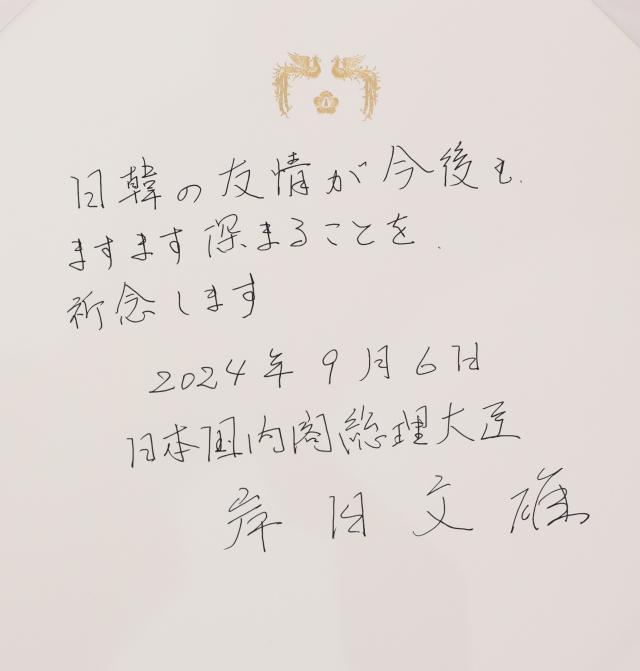 日韓の友情が今後も、
ますます深まることを、
祈念します
2024年9月6日
日本国内閣総理大臣
岸田文雄